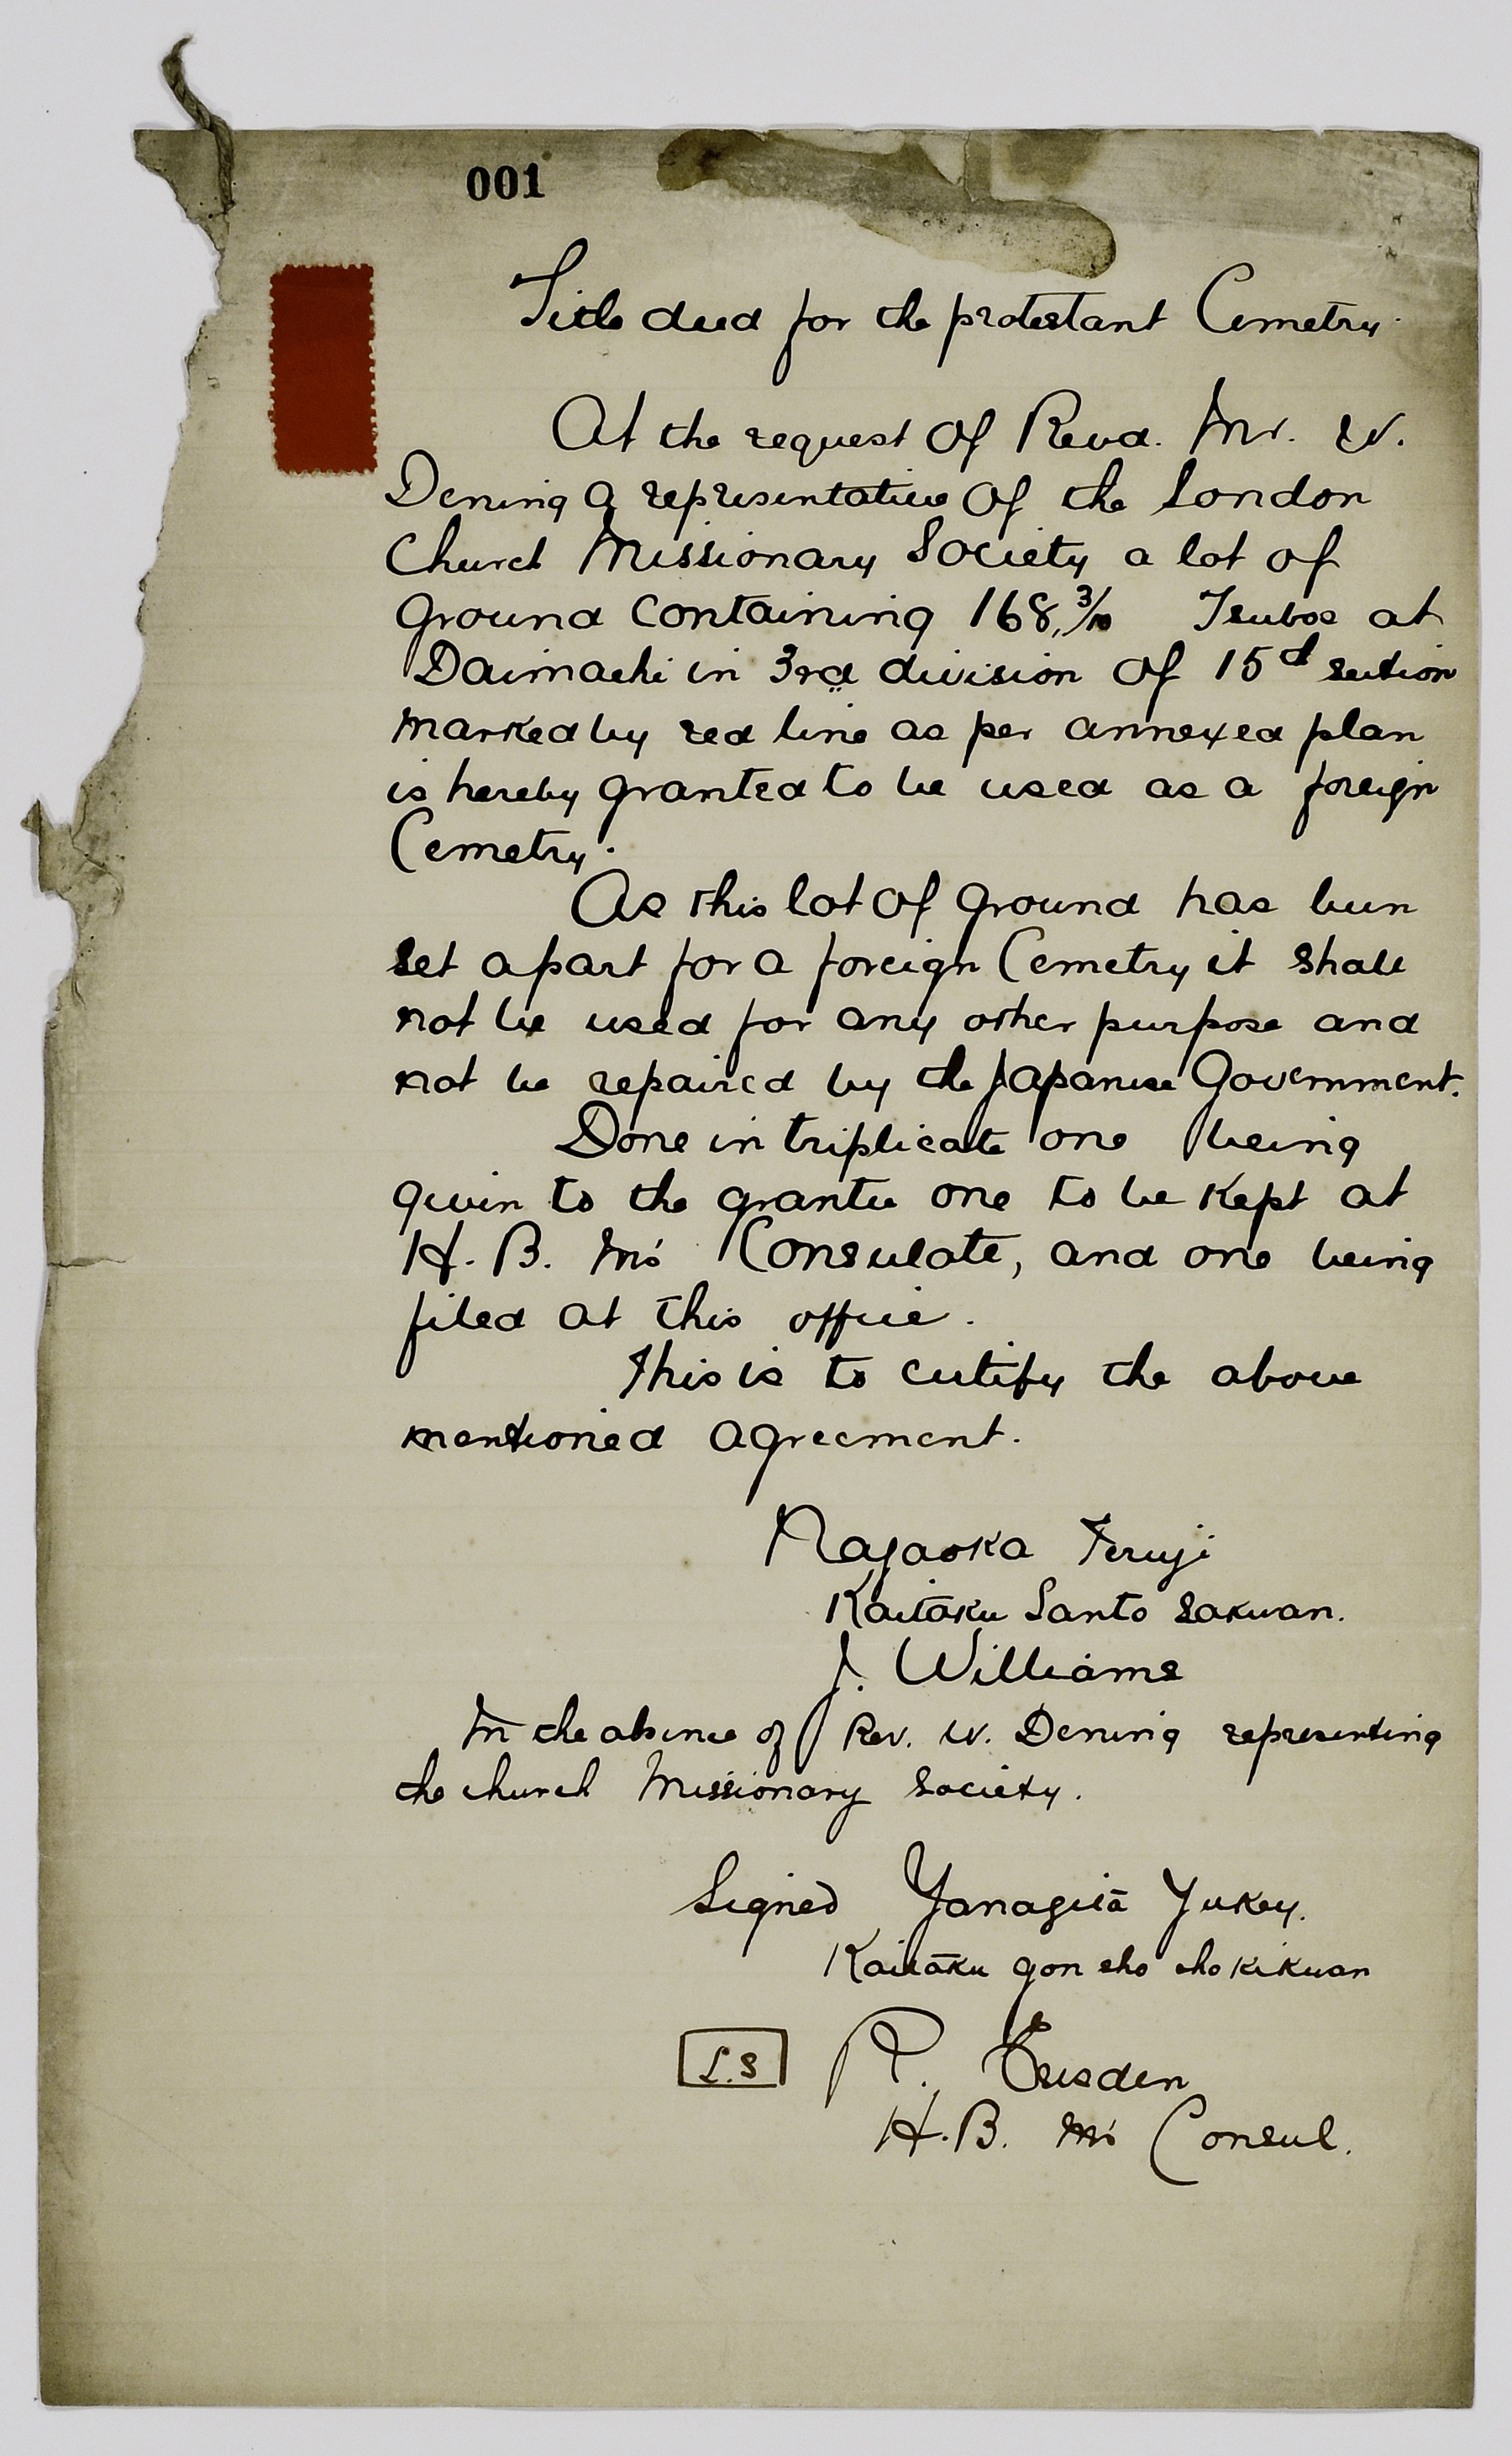 001
Title deed for the protestant Cemetry.
At the request of Revd. Mr. W.
Dening a representative of the London
Church Missionary Society a lot of
ground containing 168, 3/10 Tsuboe at
Daimachi in 3rd division of 15th section
marked by red line as per annexed plan
is hereby granted to be used as a foreign
Cemetry.
As this lot of ground has been
set apart for a foreign Cemetry it shall
not be used for any other purpose and
not be repaired by the Japanese Government.
Done in triplicate one being
given to the grantee one to be kept at
H. B. M's Consulate, and one being
filed at this office.
This is to certify the above
mentioned agreement.
Nagaoka Teruji
Kaitaku Santo Sakuan.
J. Williams
In the absence of Rev. W. Dening representing
the church Missionary Society.
Signed Yanagita Yukey.
Kaitaku gon sho sho Kikuan
L.S R. Eusden
H.B. M's Consul.